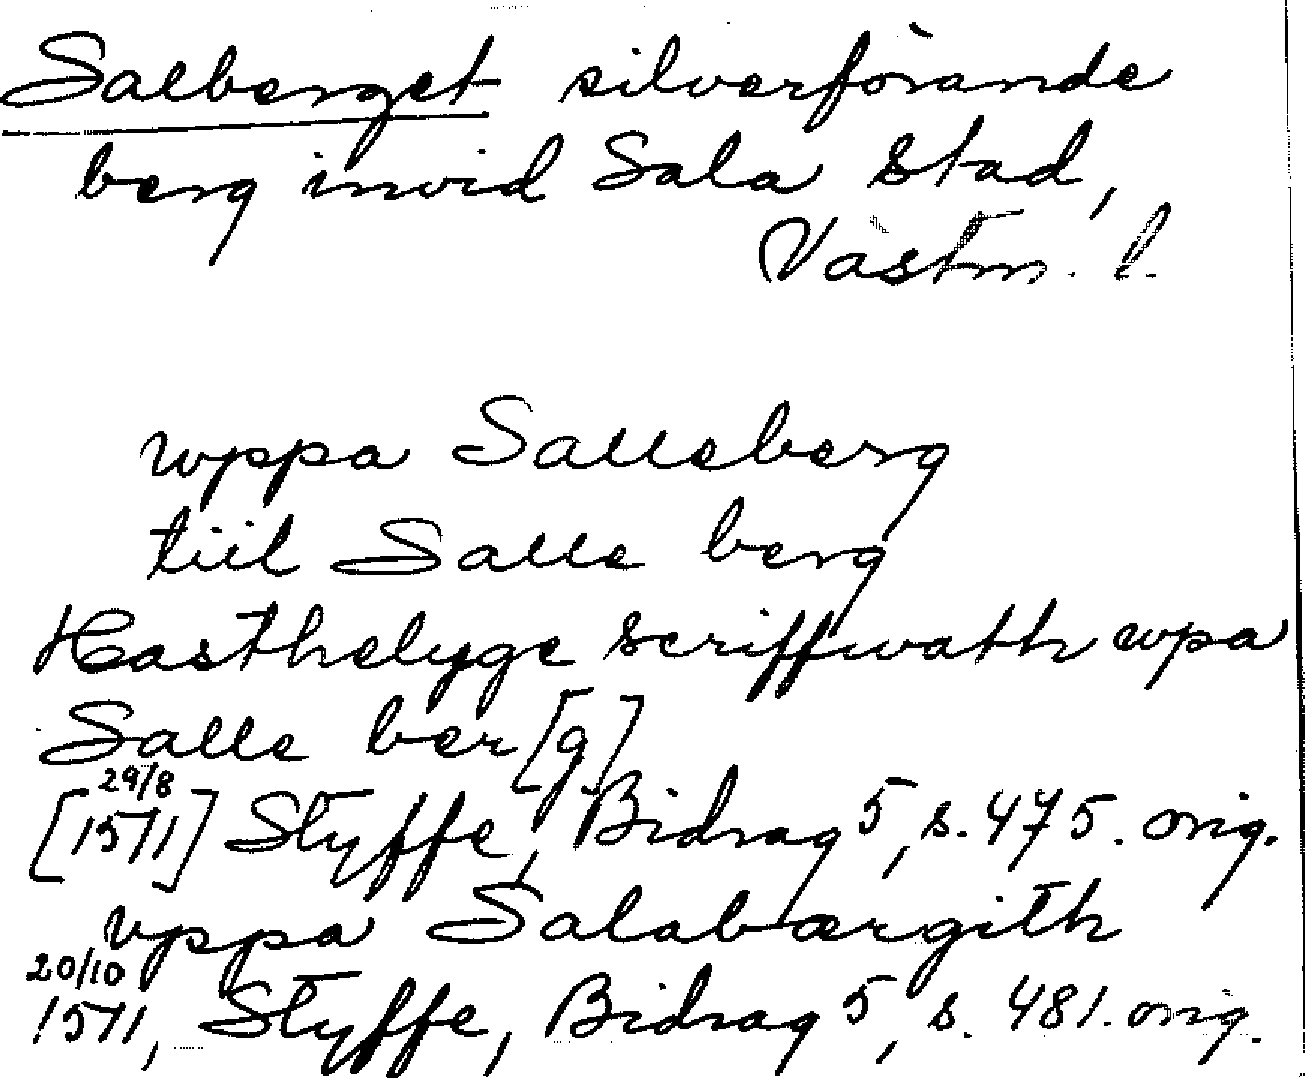 Salberget silverförande
berg invid Sala stad,
Västm. l.
wppa Salleberg
tiil Salle berg
Hasthelyge scriffwath wpa
Salle ber[g]
29/8
[1511] Styffe, Bidrag 5, s. 475. orig.
vppa Salabærgith
20/10
1511, Styffe, Bidrag 5, s. 481. orig.